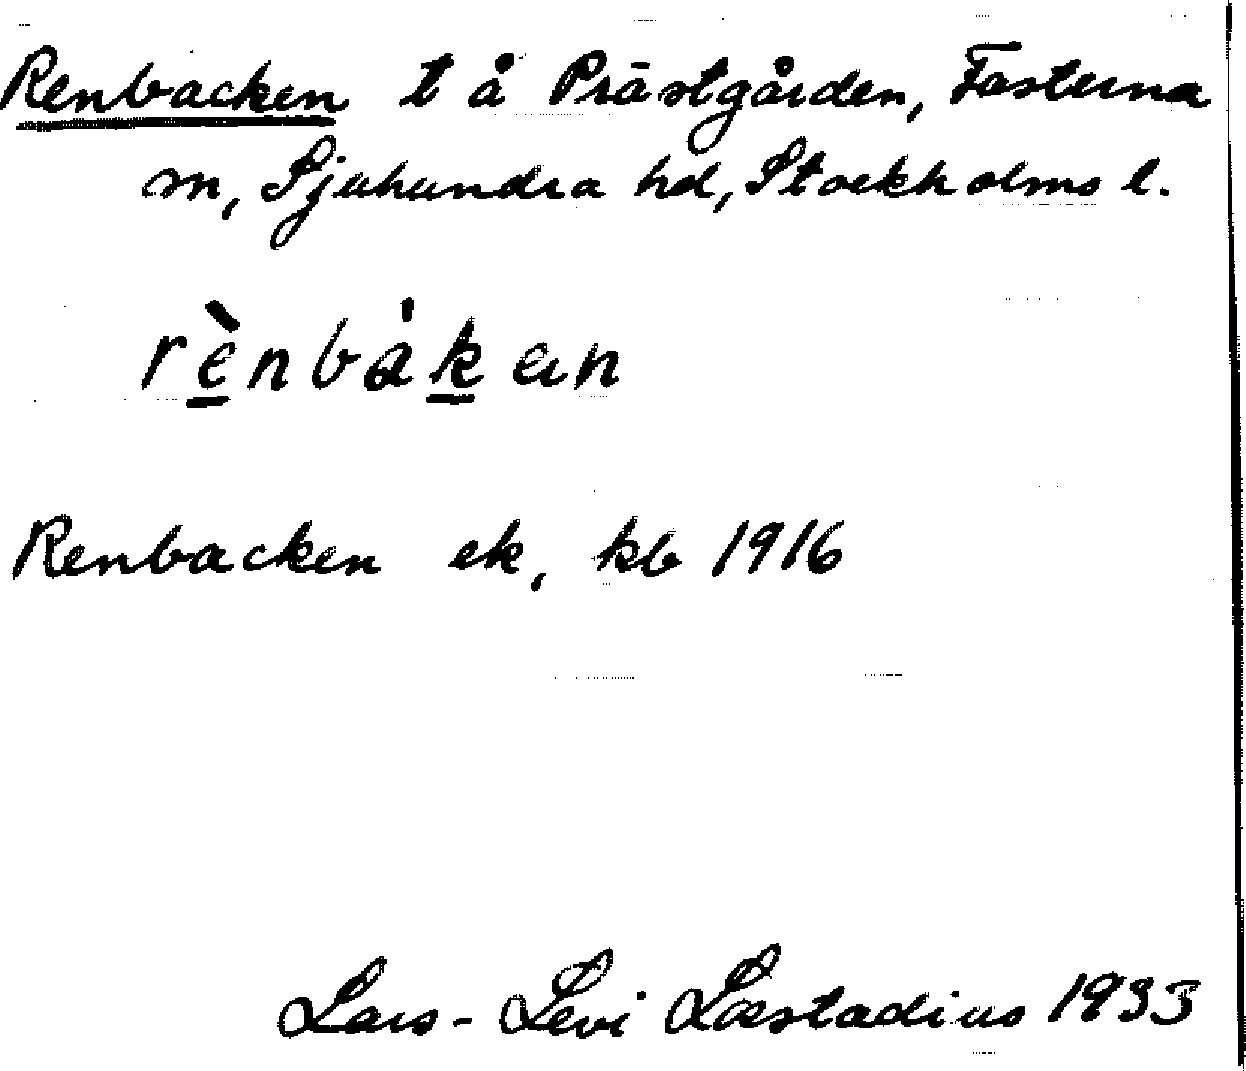 Renbacken t å Prästgården, Fasterna
sn, Sjuhundra hd, Stockholms l.
rènbákan
Renbacken ek, kb 1916
Lars-Levi Læstadius 1933